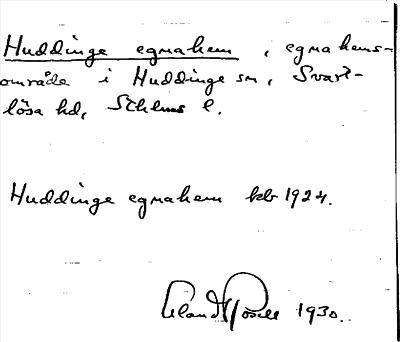 Huddinge egnahem, egnahems-
område i Huddinge sn, Svart-
lösa hd, Sthlms l.
Huddinge egnahem kb 1924.
1930.